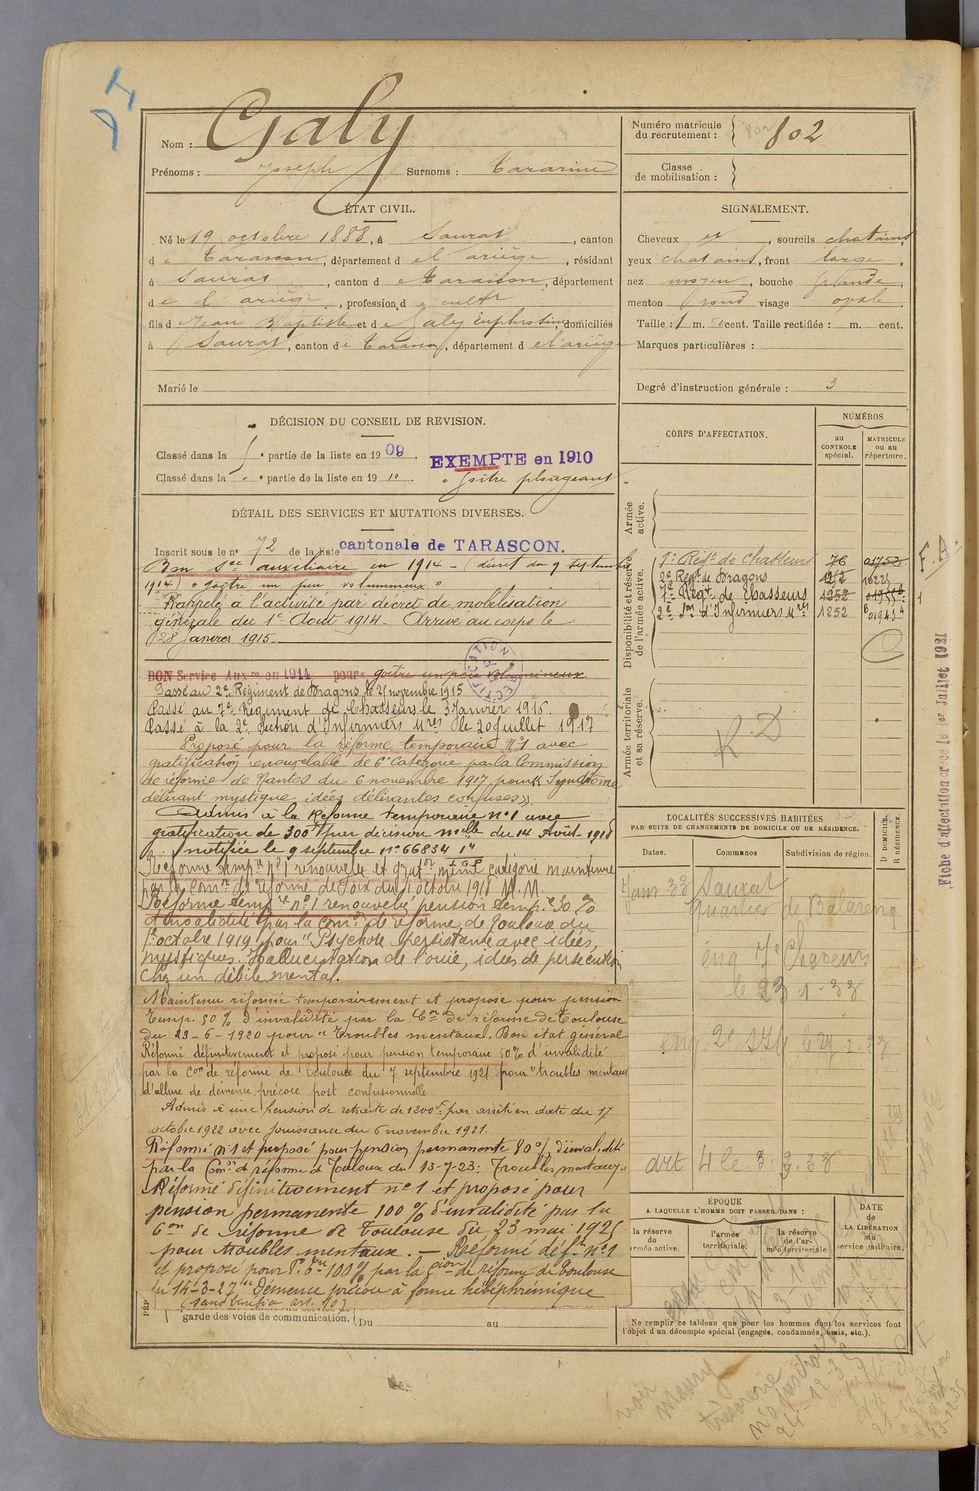 Nom : Galy
Prénoms : Joseph Surnoms : Tararine
Numéro matricule du recrutement : 802
Classe de mobilisation :
ÉTAT CIVIL.
Né le 19 octobre 1888, à Saurat, canton
de Tarascon, département de l'ariège, résidant
à Saurat, canton de Tarascon, département
de l'ariège, profession de cultr
fils de Jean Baptiste et de Galy Euphrosine, domiciliés
à Saurat, canton de Tarascon, département de l'ariège
Marié le
SIGNALEMENT.
Cheveux et, sourcils chatains
yeux chatains, front large,
nez moyen, bouche grande,
menton rond visage ovale.
Taille : 1 m. 60 cent. Taille rectifiée : m. cent.
Marques particulières :
Degré d'instruction générale : 3
DÉCISION DU CONSEIL DE REVISION.
Classé dans la 5e partie de la liste en 1909.
EXEMPTE en 1910
Classé dans la " e partie de la liste en 1910. Goître plongeant
DÉTAIL DES SERVICES ET MUTATIONS DIVERSES.
Inscrit sous le no 72 de la liste cantonale de TARASCON.
Bon Sce auxiliaire en 1914 - (déciset du 9 septembre
1914) "goître un peu volumineux"
Rappelé à l'activité par décret de mobilisation
générale du 1er Août 1914. Arrivé au corps le
28 Janvier 1915.
BON Service Auxre en 1914 pour goître un peu volumineux
RECTIFICATION
Passé au 2e Régiment de Dragons le 25 novembre 1915
Passé au 7e Régiment de Chasseurs le 3 Janvier 1916.
Passé à la 2e Section d'Infirmiers Mres le 20 Juillet 1917
Proposé pour la réforme temporaire no 1 avec
gratification renouvelable de 6e catégorie par la Commission
de réforme de Nantes du 6 novembre 1917 pour « Syndrome
délirant mystique, idées délirantes confuses ».
Admis à la Réforme temporaire no 1 avec
gratification de 300 f par décision mlle du 14 Août 1918
notifiée le 9 septembre no 66834
Réforme tempre no 1 renouvelée et gration même catégorie maintenue
par la comon de réforme de Foix du octobre 1918 M.M.
Réforme tempre no 1 renouvelée pension temp. 30 %
d'invalidité par la comon de réforme de Toulouse du
1er octobre 1919, pour "Psychose persistante avec idées
mystiques. Hallucination de l'ouïe, idées de persécution
chez un débile mental.
Maintenu réformé temporairement et proposé pour pension
temp. 50 % d'invalidité par la Con de réforme de Toulouse
du 23-6-1920 pour "Troubles mentaux. Bon état général
Réformé définitivement et proposé pour pension temporaire 50% d'invalidité
par la con de réforme de Toulouse du 7 septembre 1921 pour "troubles mentaux
d'allure de démence précoce post confusionnelle
Admis à une pension de retraite de 1200f par arrêté en date du 17
octobre 1922 avec jouissance du 6 novembre 1921.
Réformé no 1 et proposé pour pension permanente 80 % d'invalidité
par la Comon de réforme de Toulouse du 13-7-23 : Troubles mentaux
Réformé définitivement no 1 et proposé pour
pension permanente 100 % d'invalidité par la
Con de réforme de Toulouse du 23 mai 1925
pour troubles mentaux. — Réformé déft no 1
et proposé pour P. 100% par la Con de réforme de Toulouse
du 14-3-27 "Démence précoce à forme hébéphrénique
(sans bénéfice art. 10)
garde des voies de communication. Du au
CORPS D'AFFECTATION.
NUMÉROS
au CONTROLE spécial.
MATRICULE ou au répertoire.
Armée active.
Disponibilité et réserve de l'armée active.
7e Regt de Chasseurs 76
2e Regt de Dragons 1252 16225
7e Regt de Chasseurs 1252
2e Son d'Infirmiers Mres 1252
Armée territoriale et sa réserve.
R.D
Fiche d'affectation créée le 1er Juillet 1921
LOCALITÉS SUCCESSIVES HABITÉES
PAR SUITE DE CHANGEMENTS DE DOMICILE OU DE RÉSIDENCE.
Dates. Communes Subdivision de région. D DOMICILE. R RÉSIDENCE.
Saurat
quartier de
7e Chasseurs
le 23-1-38
ÉPOQUE
A LAQUELLE L'HOMME DOIT PASSER DANS :
la réserve de l'armée active.
l'armée territoriale.
la réserve de l'armée territoriale
DATE de LA LIBÉRATION du service militaire.
Ne remplir ce tableau que pour les hommes dont les services font
l'objet d'un décompte spécial (engagés, condamnés, omis, etc.).
voir